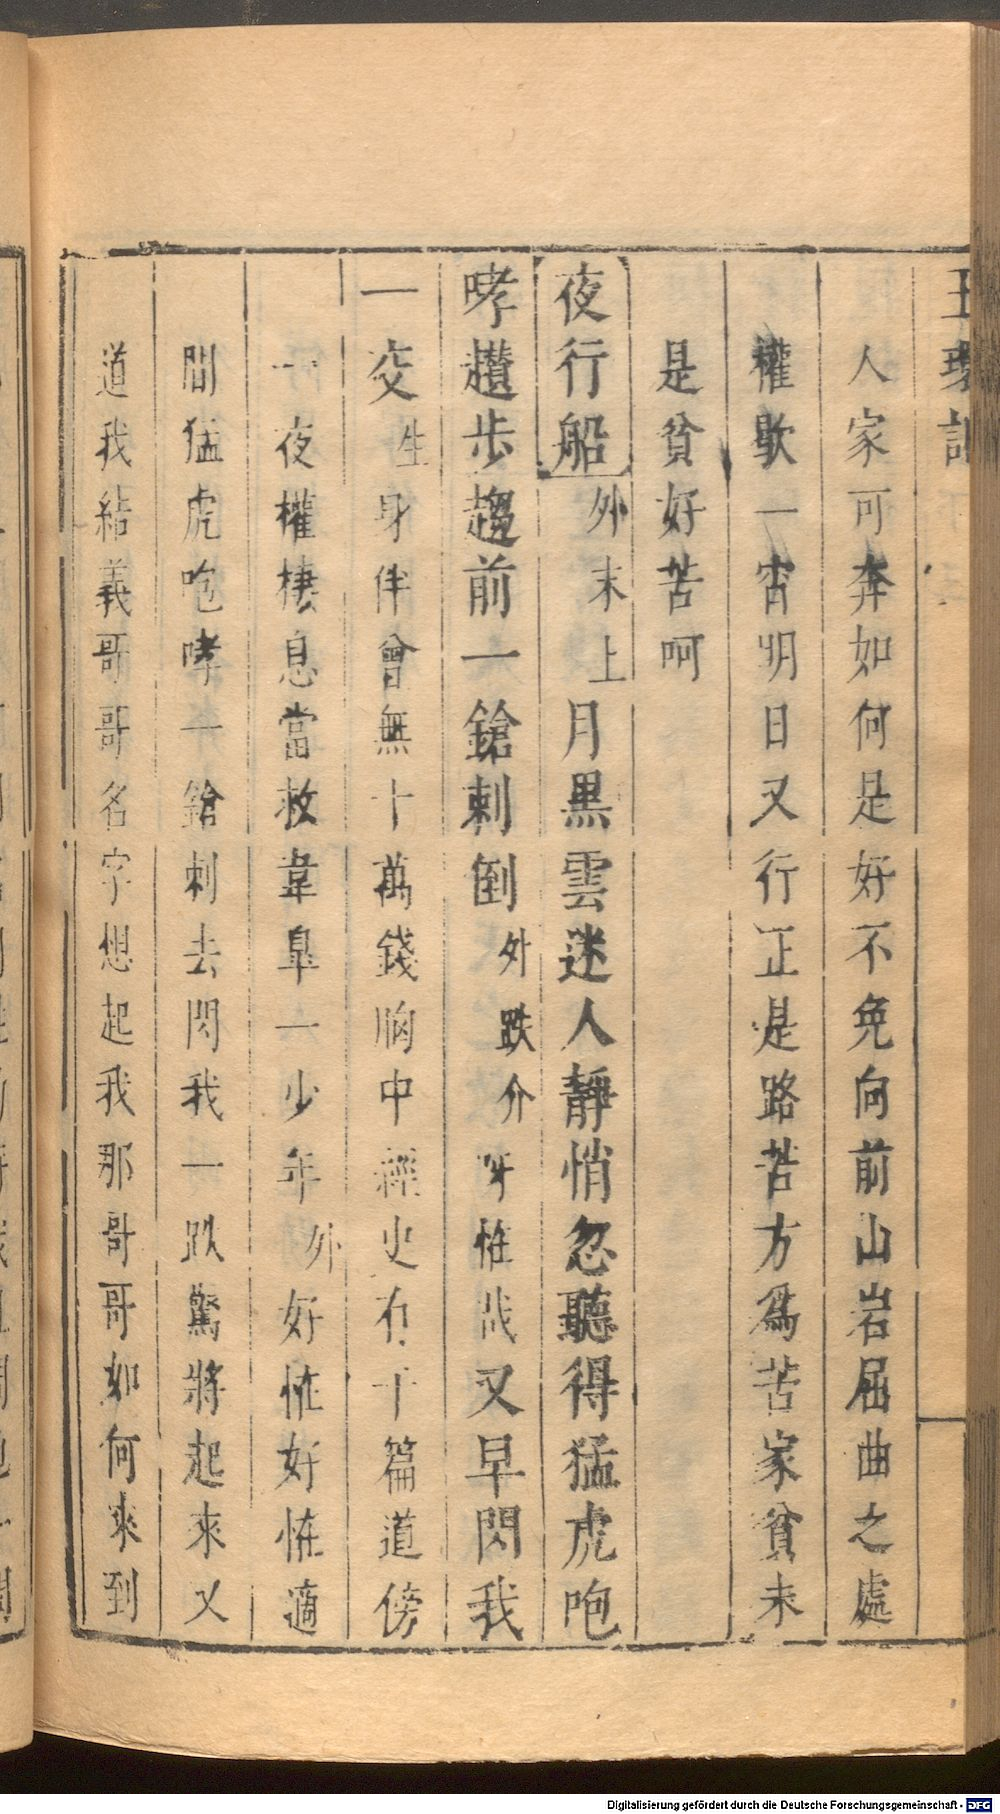 玉環記
人家可奔如何是好不免向前山岩屈曲之處
權歇一宵明日又行正是路苦方為苦家貧未
是貧好苦呵
夜行船 外末上 月黑雲迷人靜悄忽聽得猛虎咆
哮趲步趨前一鎗刺倒 外跌介 好恠哉又早閃我
一交 生 身伴曾無十萬錢胸中經史有千篇道傍
一夜權棲息當救韋皐一少年 外 好恠好恠適
間猛虎咆哮一鎗刺去閃我一跌驚將起來又
道我結義哥哥名字想起我那哥哥如何來到
Digitalisierung gefördert durch die Deutsche Forschungsgemeinschaft - DFG